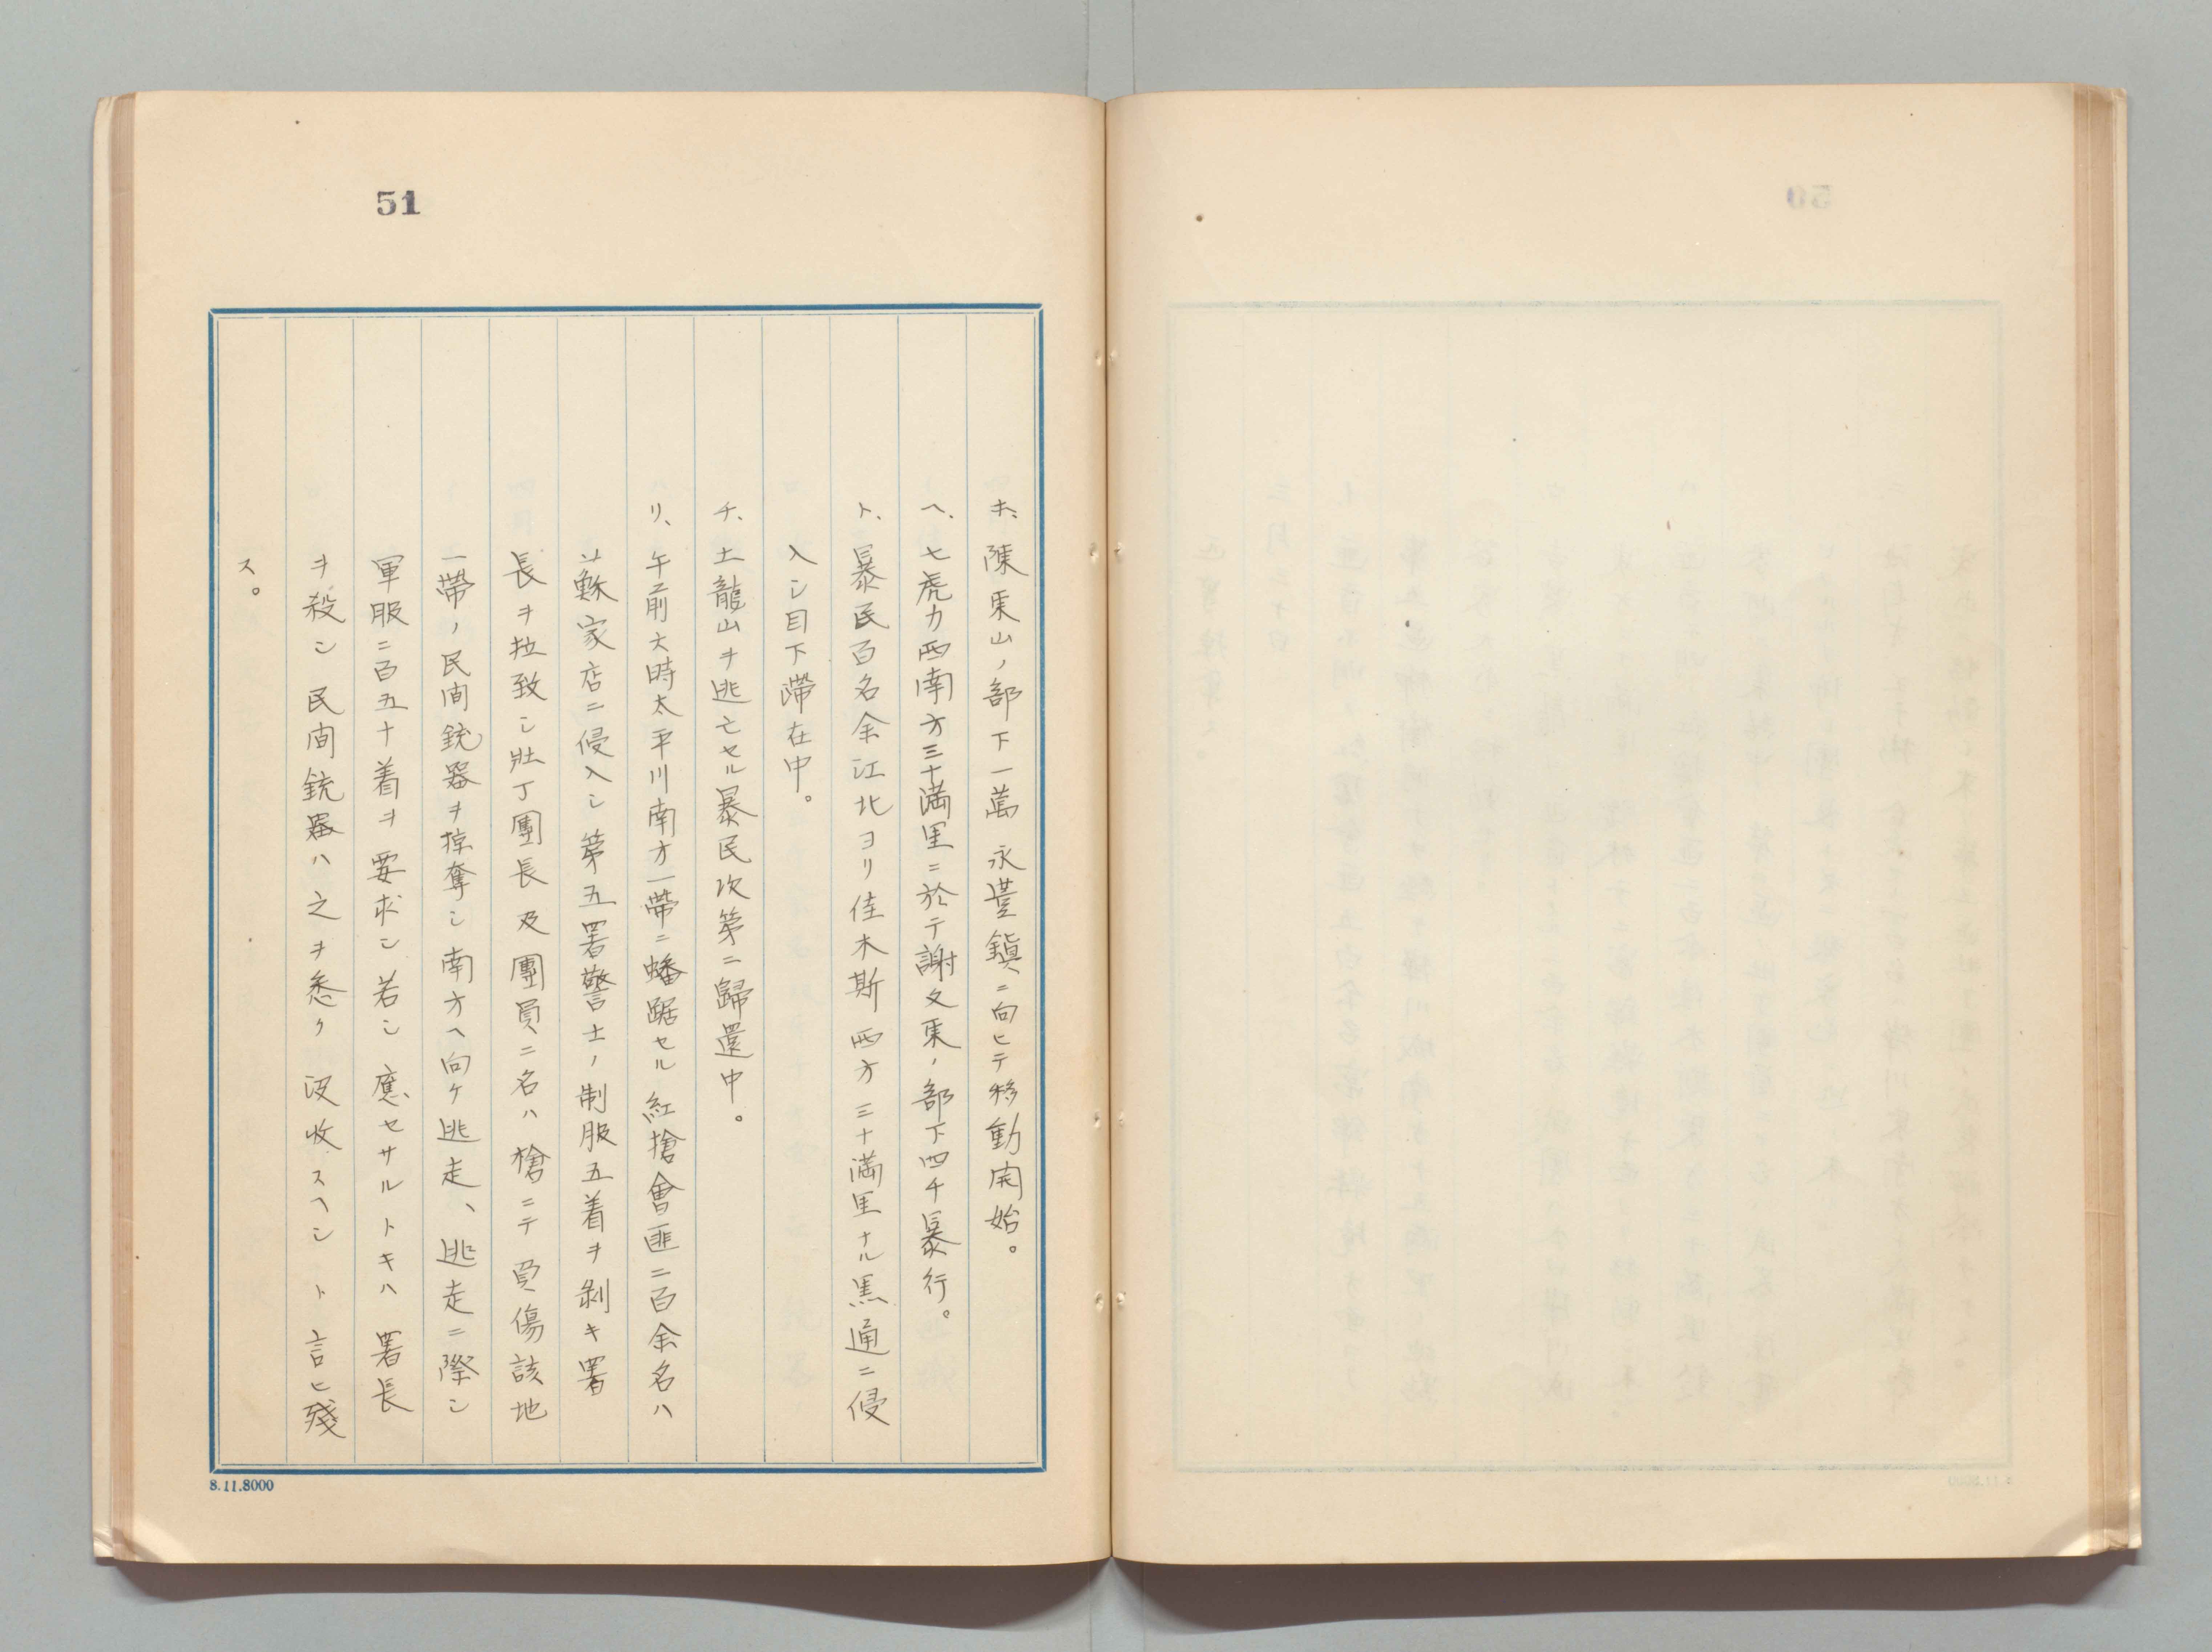 51
ホ、陳東山ノ部下一萬　永豊鎮ニ向ヒテ移動開始。
ヘ、七虎力西南方三十満里ニ於テ謝文東ノ部下四千暴行。
ト、暴民百名余江北ヨリ佳木斯西方三十満里ナル馬通ニ侵
入シ目下滞在中。
チ、土龍山ヲ逃亡セル暴民次第ニ歸還中。
リ、午前六時太平川南方一帶ニ蟠踞セル紅搶會匪二百余名ハ
蘇家店ニ侵入シ第五署警士ノ制服五着ヲ剥キ署
長ヲ拉致シ壯丁團長及團員二名ハ槍ニテ負傷該地
一帶ノ民間銃器ヲ掠奪シ南方ヘ向ケ逃走、逃走ニ際シ
軍服二百五十着ヲ要求シ若シ應セサルトキハ署長
ヲ殺シ民間銃器ハ之ヲ悉ク没收スヘシト言ヒ殘
ス。
8.11.8000